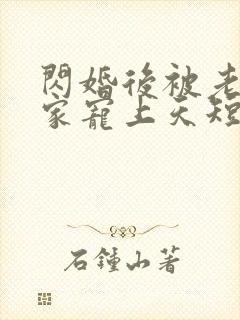 閃婚後被老
家寵上天短
石鍾山著